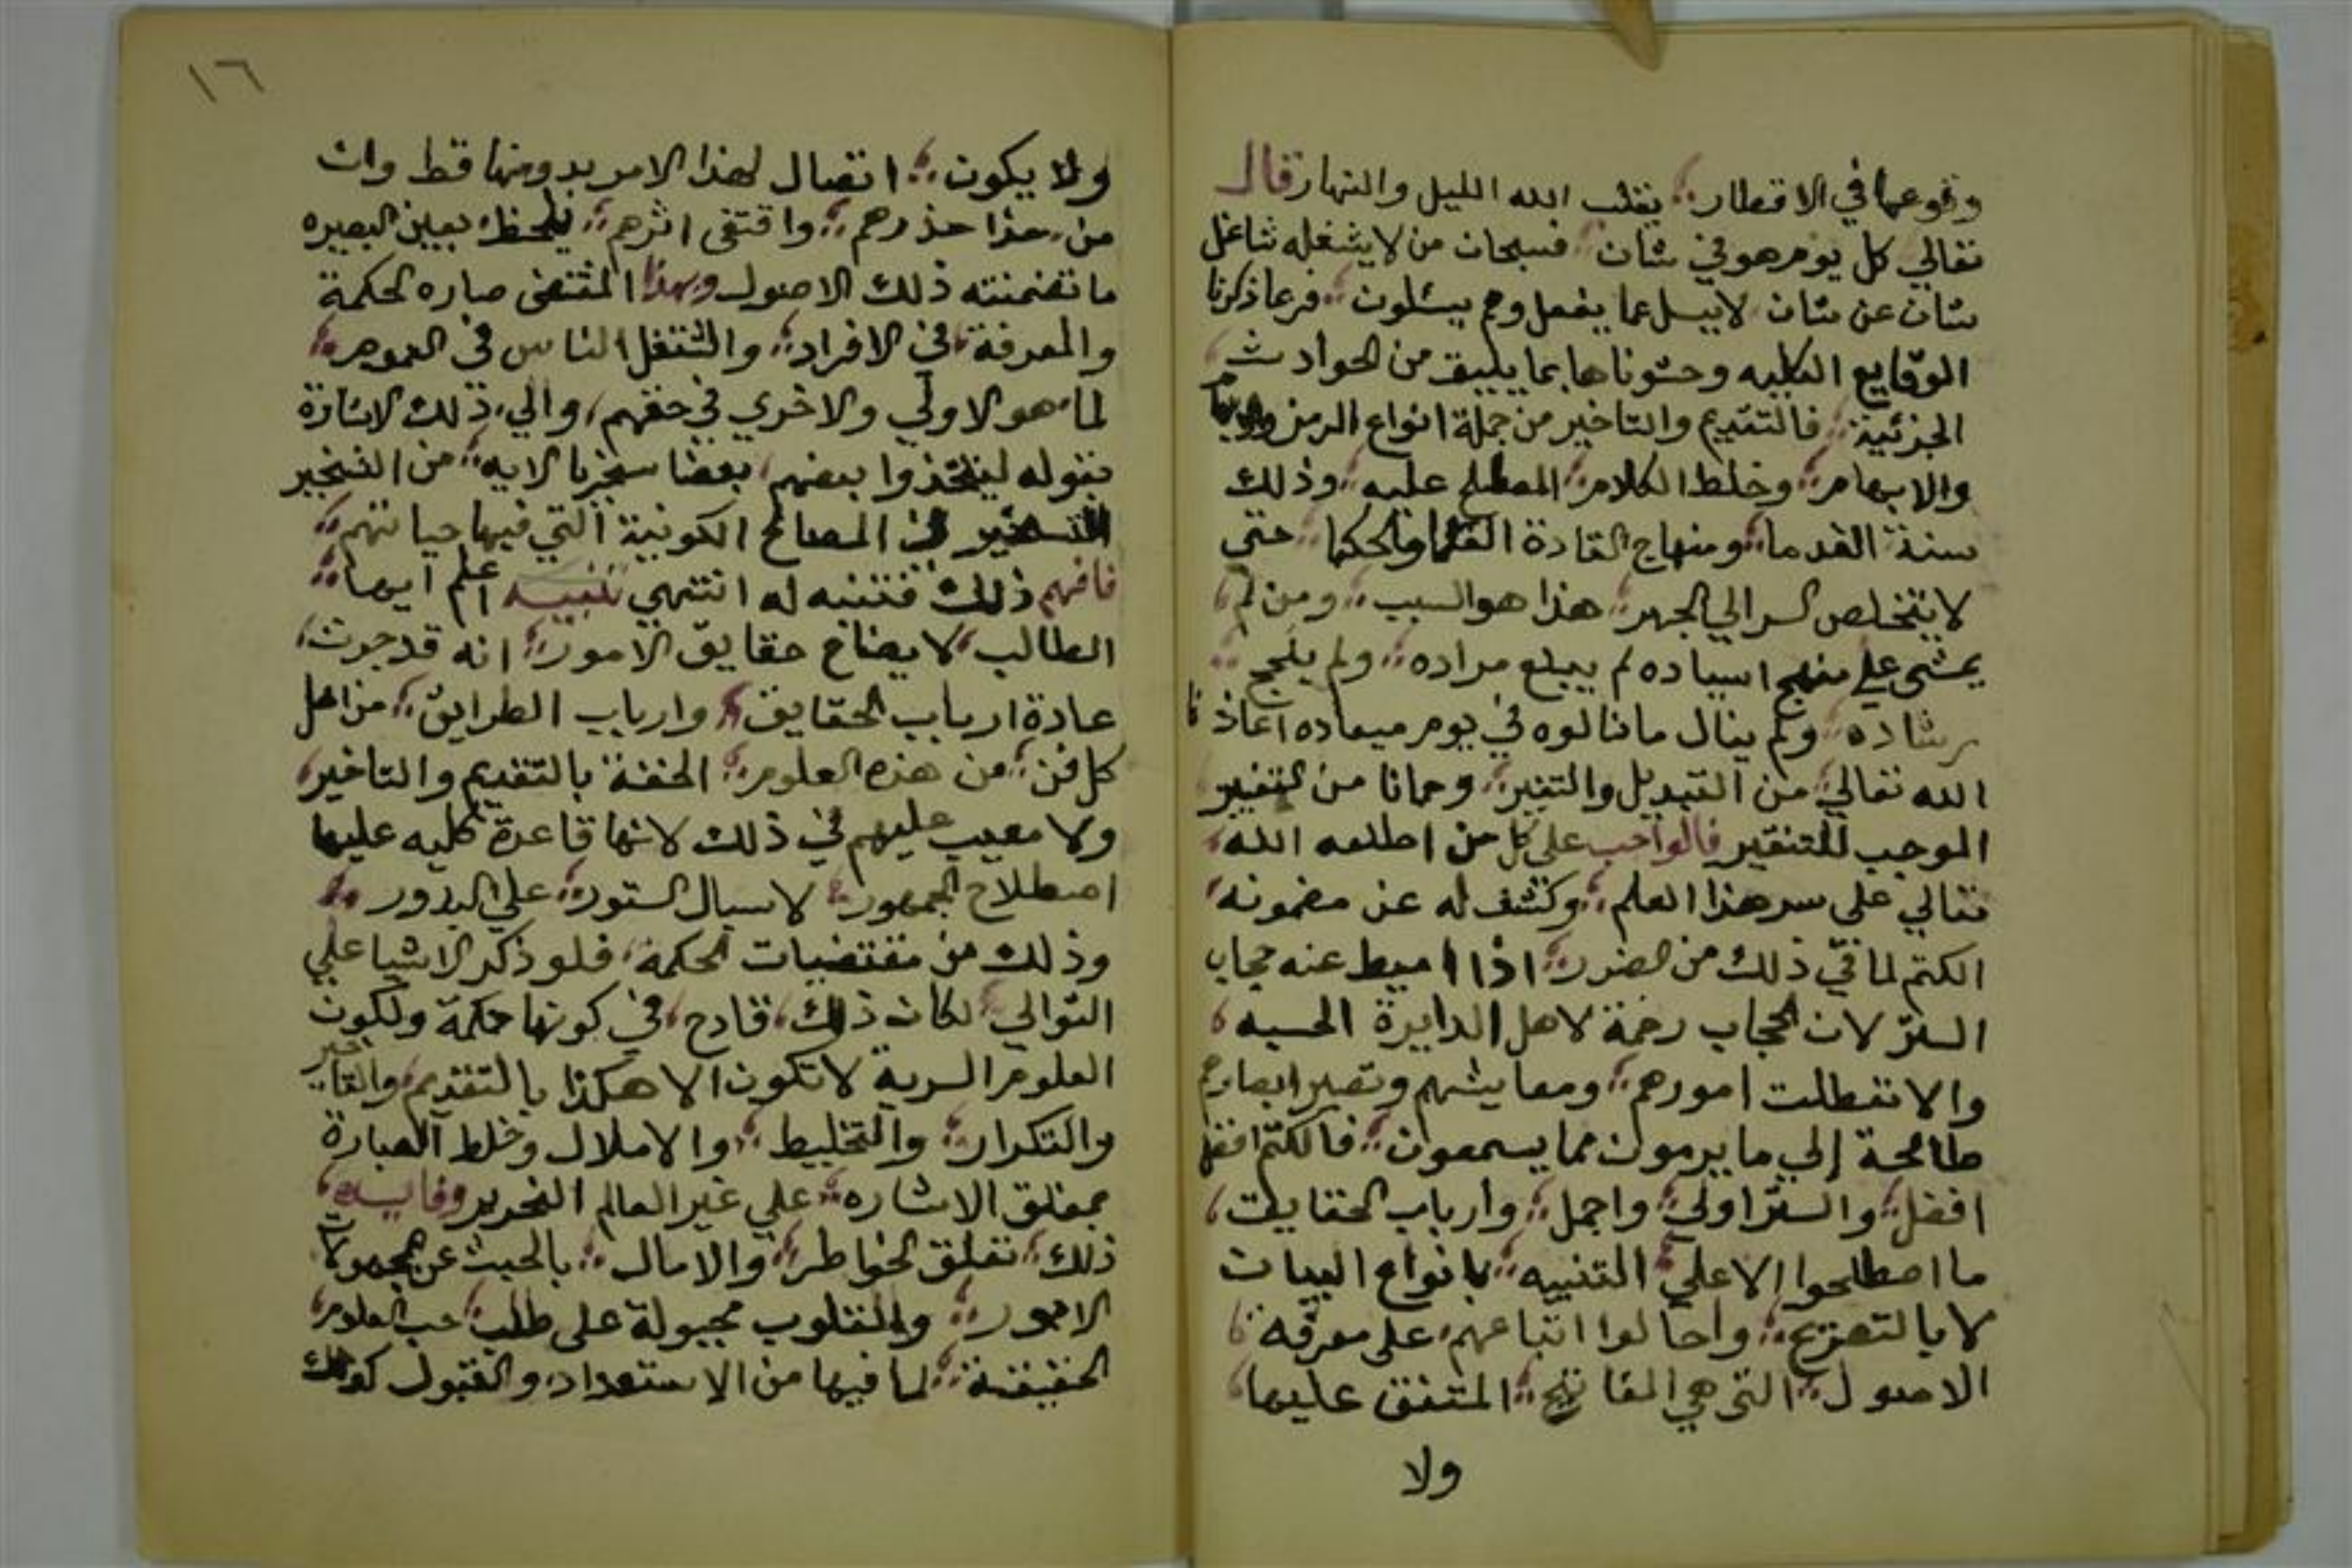 وقوعها في الاقطار يقلب الله الليل والنهار قال
تعالي كل يوم هو في شان فسبحان من لا يشغله شاغل
شان عن شان لا يسل عما يفعل وهم يسئلون فرعا ذكرنا
الوقايع الكليه وحشوناها بما يليق من الحوادث
الجزئية فالتقديم والتاخير من جملة انواع الرمز
والابهام وخلط الكلام المصطلح عليه وذلك
سنة القدما ومنهاج القادة العلما والحكما حتي
لا يتخلص السر الي الجهر هذا هو السبب ومن لم
يمشي علي منهج اسياده لم يبلغ مراده ولم ينجح
رشاده ولم ينال ما نالوه في يوم ميعاده اعاذنا
الله تعالي من التبديل والتغير وحمانا من التغيير
الموجب للتنقير فالواجب علي كل من اطلعه الله
تعالي علي سر هذا العلم وكشف له عن مضمونه
الكتم لما في ذلك من الضرر اذا اميط عنه حجاب
الستر لان الحجاب رحمة لاهل الدايرة الحسيه
والا تعطلت امورهم ومعايشهم وتصير ابصارهم
طامحة إلي ما يرمون مما يسمعون فالكتم
افضل والستر اولي واجمل وارباب الحقايق
ما اصطلحوا الا علي التنبيه بانواع البيات
لا بالتصرع واحالوا اتباعهم علي معرفة
الاصول التي هي المفاتيح المتفق عليها
ولا
١٦
ولا يكون اتصال لهذا الامر بدونها قط وان
من حذا حذرهم واقتفي اثرهم يلحظ بعين البصيره
ما تضمنته ذلك الاصول وبهذا المقتضي صاره الحكمة
والمعرفة في الافراد والشتغل الناس في العموم
لما هو الاولي والاخري في حقهم والي ذلك الاشارة
بقوله ليتخذوا بعضهم بعضا سخريا الايه من التسخير
التسخير في المصالح الكونية التي فيها حياتهم
فافهم ذلك فتنبه له انتهي تنبيه اعلم ايها
الطالب لايضاح حقايق الامور انه قد جرت
عادة ارباب الحقايق وارباب الطرايق من اهل
كل فن من هذه العلوم الحنفة بالتقديم والتاخير
ولا معيب عليهم في ذلك لانها قاعدة كليه عليها
اصطلاح الجمهور لاسبال الستور علي البدور
وذلك من مقتضيات الحكمة فلو ذكر الاشيا علي
التوالي لكان ذلك قادح في كونها حكمة ولكون
العلوم السرية لا تكون الا هكذا بالتقديم والتاخير
والتكرار والتخليط والاملال وخلط العبارة
بمغلق الاشاره علي غير العالم النحرير وفايدة
ذلك تعلق الخواطر والامال بالحبث عن مجهولات
الامور والقلوب مجبولة علي طلب حب العلوم
الحقيقة لما فيها من الاستعداد والقبول كونك